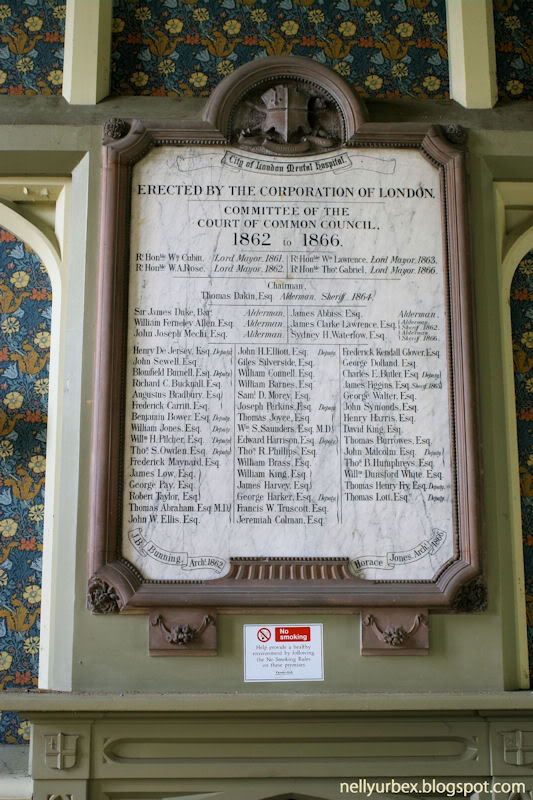 City of London Mental Hospital
ERECTED BY THE CORPORATION OF LONDON.
COMMITTEE OF THE
COURT OF COMMON COUNCIL,
1862 to 1866.
Rt. Honble Wm. Cubitt, Lord Mayor, 1861.
Rt. Honble W.A. Rose, Lord Mayor, 1862.
Rt. Honble Wm. Lawrence, Lord Mayor, 1863.
Rt. Honble Thos. Gabriel, Lord Mayor, 1866.
Chairman,
Thomas Dakin, Esq. Alderman, Sheriff 1864.
Sir James Duke, Bart. Alderman.
William Ferneley Allen, Esq. Alderman.
John Joseph Mechi, Esq. Alderman.
James Abbiss, Esq. Alderman.
James Clarke Lawrence, Esq. Alderman, Sheriff 1862.
Sydney H. Waterlow, Esq. Alderman, Sheriff 1866.
Henry De Jersey, Esq. Deputy
John Sewell, Esq.
Blomfield Burnell, Esq. Deputy
Richard C. Bucknall, Esq.
Augustus Bradbury, Esq.
Frederick Carritt, Esq.
Benjamin Bower, Esq. Deputy
William Jones, Esq. Deputy
Willm. H. Pilcher, Esq. Deputy
Thos. S. Owden, Esq. Deputy
Frederick Maynard, Esq.
James Low, Esq.
George Pay, Esq.
Robert Taylor, Esq.
Thomas Abraham, Esq. M.D.
John W. Ellis, Esq.
John H. Elliott, Esq. Deputy
Giles Silverside, Esq.
William Connell, Esq.
William Barnes, Esq.
Saml. D. Morey, Esq.
Joseph Perkins, Esq. Deputy
Thomas Joyce, Esq.
Wm. S. Saunders, Esq. M.D.
Edward Harrison, Esq. Deputy
Thos. R. Phillips, Esq.
William Brass, Esq.
William King, Esq.
James Harvey, Esq.
George Harker, Esq. Deputy
Francis W. Truscott, Esq.
Jeremiah Colman, Esq.
Frederick Kendall Glover, Esq.
George Dolland, Esq.
Charles E. Butler, Esq. Deputy
James Figgins, Esq. Sheriff
George Walter, Esq.
John Symonds, Esq.
Henry Harris, Esq.
David King, Esq.
Thomas Burrowes, Esq.
John Malcolm, Esq. Deputy
Thos. B. Humphreys, Esq.
Willm. Dunsford White, Esq.
Thomas Henry Fry, Esq. Deputy
Thomas Lott, Esq. Deputy
J.B. Bunning, Archt. 1862
Horace Jones, Archt. 1866
No smoking
Help provide a healthy
environment by following
the No Smoking Rules
on these premises
nellyurbex.blogspot.com